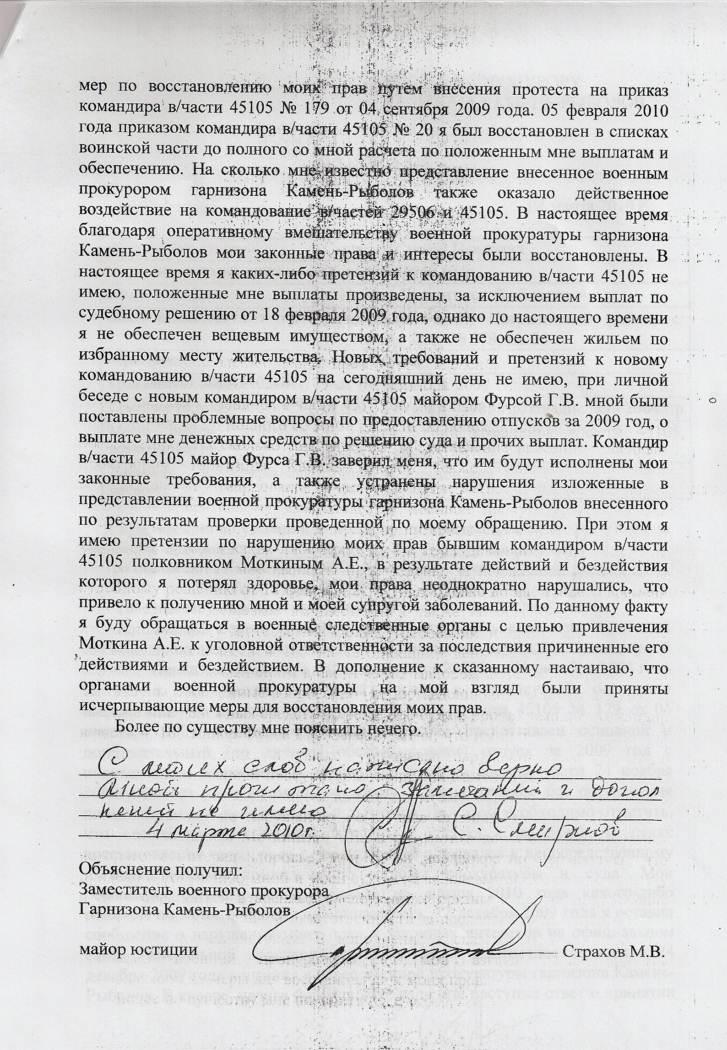 мер по восстановлению моих прав путем внесения протеста на приказ
командира в/части 45105 № 179 от 04 сентября 2009 года. 05 февраля 2010
года приказом командира в/части 45105 № 20 я был восстановлен в списках
воинской части до полного со мной расчета по положенным мне выплатам и
обеспечению. На сколько мне известно представление внесенное военным
прокурором гарнизона Камень-Рыболов также оказало действенное
воздействие на командование в/частей 29506 и 45105. В настоящее время
благодаря оперативному вмешательству военной прокуратуры гарнизона
Камень-Рыболов мои законные права и интересы были восстановлены. В
настоящее время я каких-либо претензий к командованию в/части 45105 не
имею, положенные мне выплаты произведены, за исключением выплат по
судебному решению от 18 февраля 2009 года, однако до настоящего времени
я не обеспечен вещевым имуществом, а также не обеспечен жильем по
избранному месту жительства. Новых требований и претензий к новому
командованию в/части 45105 на сегодняшний день не имею, при личной
беседе с новым командиром в/части 45105 майором Фурсой Г.В. мной были
поставлены проблемные вопросы по предоставлению отпусков за 2009 год, о
выплате мне денежных средств по решению суда и прочих выплат. Командир
в/части 45105 майор Фурса Г.В. заверил меня, что им будут исполнены мои
законные требования, а также устранены нарушения изложенные в
представлении военной прокуратуры гарнизона Камень-Рыболов внесенного
по результатам проверки проведенной по моему обращению. При этом я
имею претензии по нарушению моих прав бывшим командиром в/части
45105 полковником Моткиным А.Е., в результате действий и бездействия
которого я потерял здоровье, мои права неоднократно нарушались, что
привело к получению мной и моей супругой заболеваний. По данному факту
я буду обращаться в военные следственные органы с целью привлечения
Моткина А.Е. к уголовной ответственности за последствия причиненные его
действиями и бездействием. В дополнение к сказанному настаиваю, что
органами военной прокуратуры на мой взгляд были приняты
исчерпывающие меры для восстановления моих прав.
Более по существу мне пояснить нечего.
С моих слов написано верно
мной прочитано замечаний и допол
нений не имею
4 марта 2010г. С. Смирнов
Объяснение получил:
Заместитель военного прокурора
Гарнизона Камень-Рыболов
майор юстиции Страхов М.В.